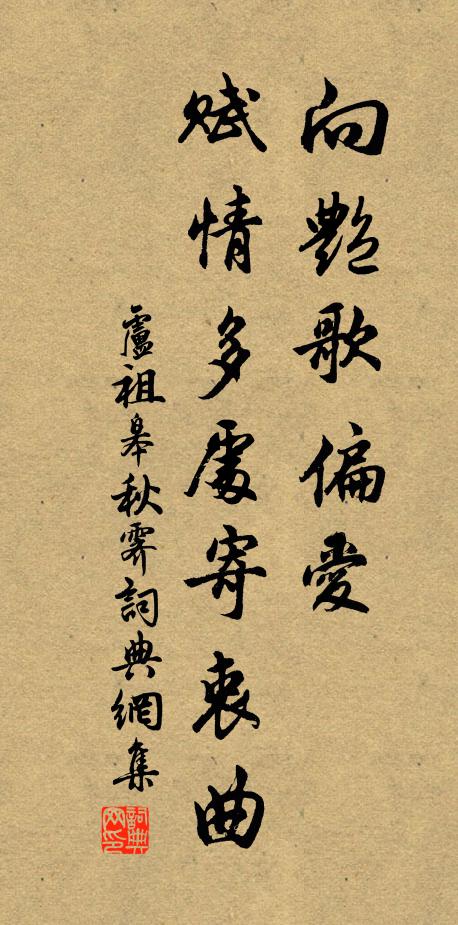 向艷歌偏愛
賦情多處寄衷曲
盧祖皋秋霽詞典網集
詞典
网印